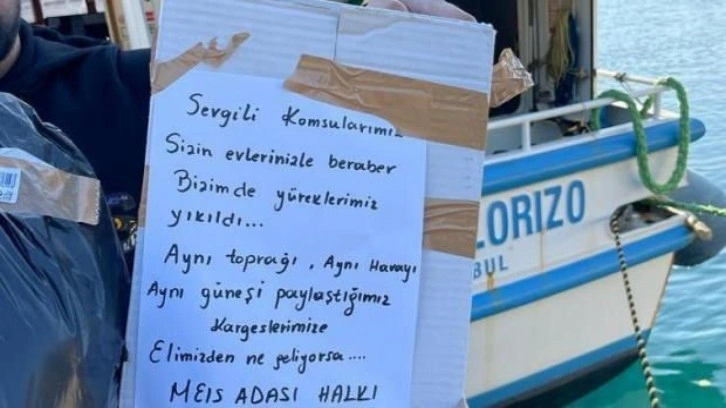 Sevgili Komsularımız
Sizin evlerinizle beraber
Bizimde yüreklerimiz
yıkıldı...
Aynı toprağı, Aynı Havayı
Aynı güneşi paylaştığımız
Kargeslerimize
Elimizden ne geliyorsa....
MEIS ADASI HALKI
LORIZO
BUL